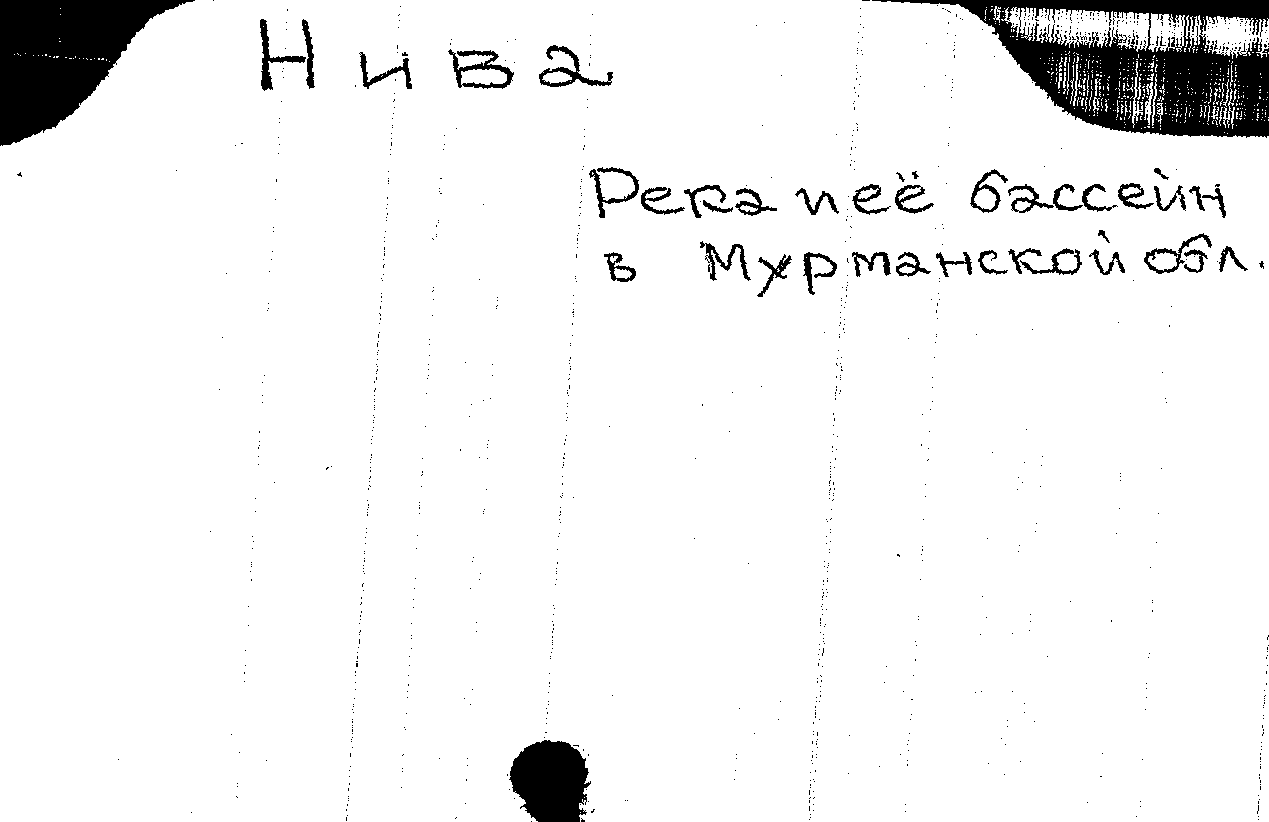 Нива
Река и её бассейн
в Мурманской обл.